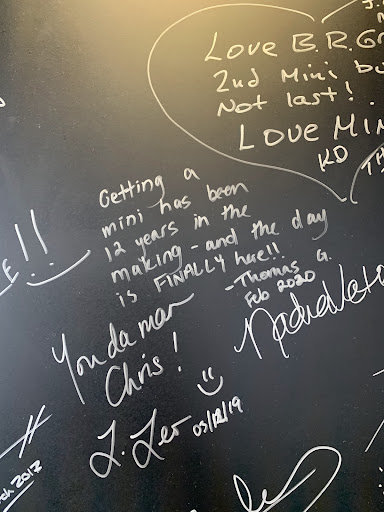 Love B.R.G
2nd Mini bu
Not last!
LOVE MIN
KD
Getting a
mini has been
12 years in the
making - and the day
is FINALLY here!!
- Thomas G.
Feb 2020
You da man
Chris!
L. Leo 03/12/19
ch 2017